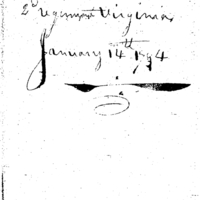 2d regiment Virginia
January 14th 1794